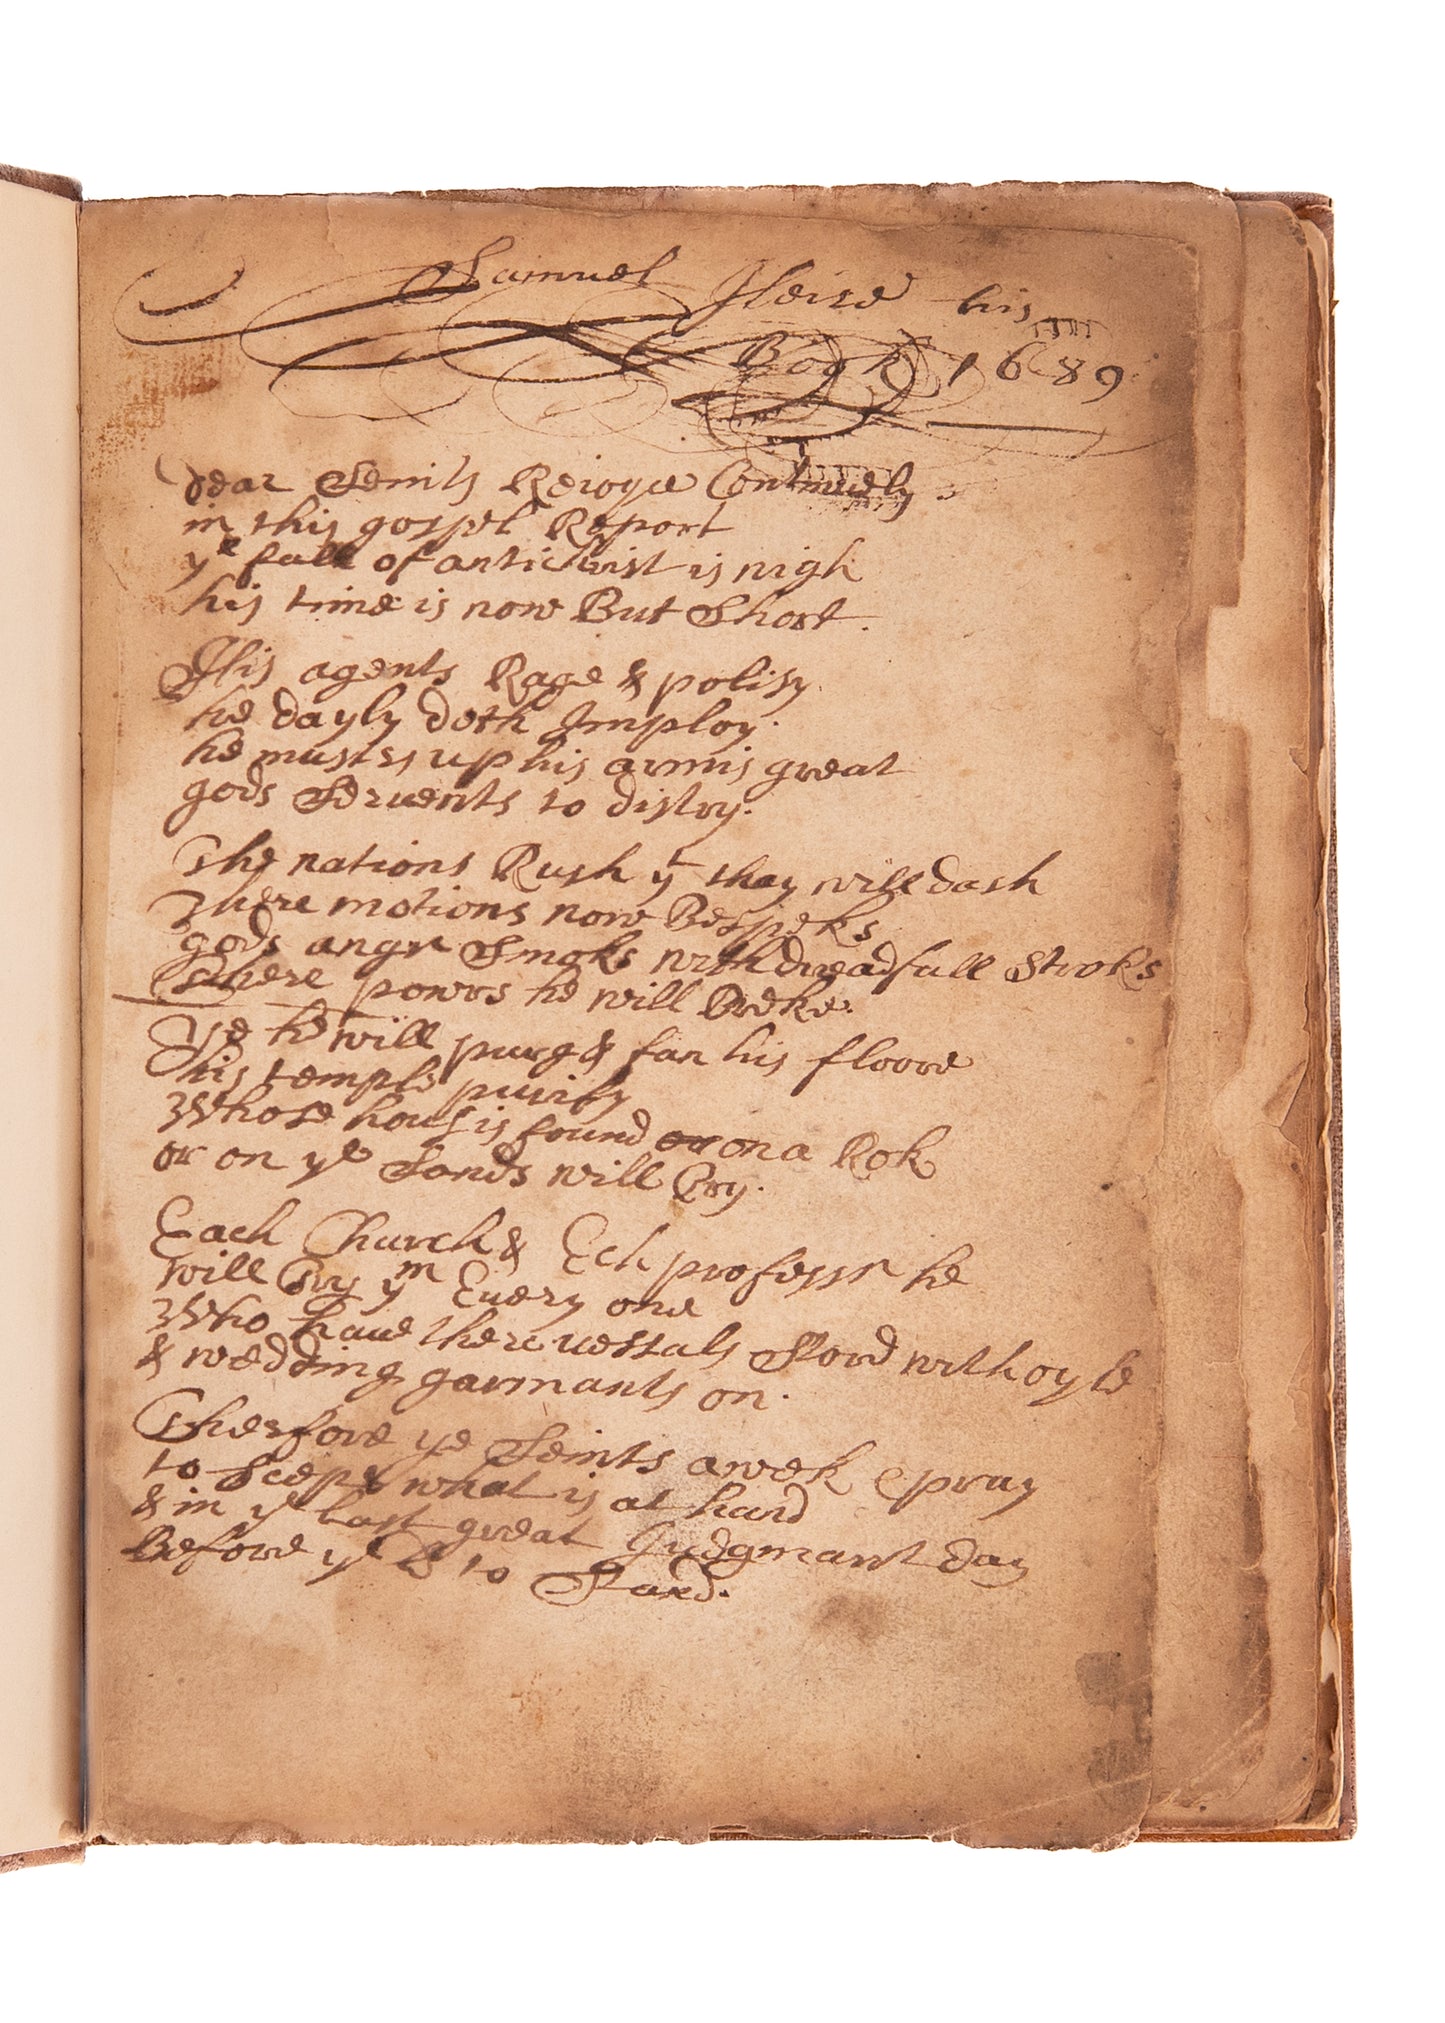 Samuel Heire his
Book 1689
Dear Seints Reioyce Continuely
in this gospel Report
ye fall of antichrist is nigh
his time is now But Short.
His agents Rage & polisy
he dayly doth Imploy.
he musters up his armis great
gods Seruents to distry.
The nations Rush yt thay will dash
There motions now Bespeks
gods angr Smoks with dreadfull Stroks
there powrs he will Breke.
Ye he will purg & fan his floore
his temple purify
Whose hous is found on a Rok
or on ye Sands will Try.
Each Church & Ech professr he
will Try ym Euery one
Who haue there uessals Stord with oyle
& wedding garmants on.
Therfore ye Seints awek & pray
to Scepe what is at hand
& in ye last great Judgmant day
Before ye to Stand.